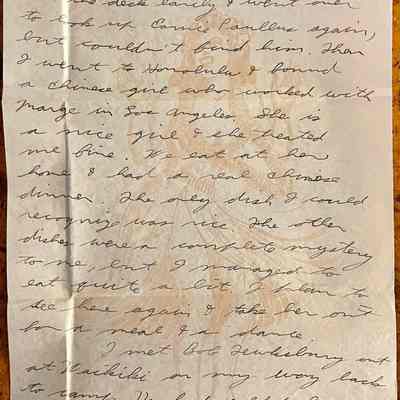 the deck early & went over
to look up Ernie Paullus again,
but couldn't find him. Then
I went to Honolulu & found
a Chinese girl who worked with
Marge in Los Angeles. She is
a nice girl & she treated
me fine. We eat at her
home & had a real Chinese
dinner. The only dish I could
recognize was rice. The other
dishes were a complete mystery
to me, but I managed to
eat quit a lot. I plan to
see here again & take her out
for a meal & a dance.
I met Bob Tewksbury out
at Waikiki on my way back
to camp.